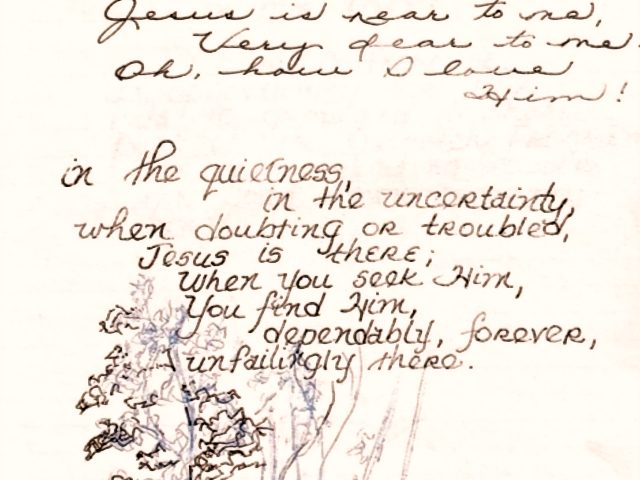 Jesus is near to me,
Very dear to me.
Oh, how I love
Him!
in the quietness,
in the uncertainty,
when doubting or troubled,
Jesus is there;
When you seek Him,
You find Him,
dependably, forever,
unfailingly there.